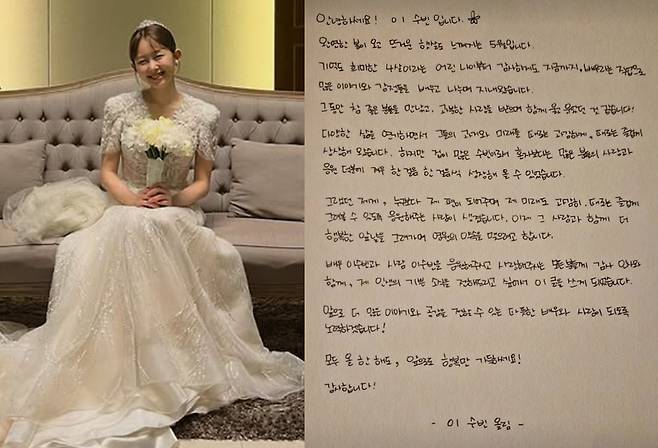 안녕하세요! 이 수빈입니다.
완연한 봄이 오고 뜨거운 햇살도 느껴지는 5월입니다.
기억도 희미한 4살이라는 어린 나이부터 감사하게도 지금까지, 배우라는 직업으로
많은 이야기와 감정들을 배우고 나누며 지내왔습니다.
그동안 참 좋은 분들을 만나고, 과분한 사랑을 받으며 함께 울고 웃었던 것 같습니다!
다양한 삶을 연기하면서 그들의 과거와 미래를 때로는 고민하며, 때로는 즐겁게
상상해 왔습니다. 하지만 겁이 많은 수빈이라서 혼자보다는 많은 분들의 사랑과
응원 덕분에 겨우 한 걸음 한 걸음씩 성장해 올 수 있었습니다.
그랬던 제게, 누구보다 제 편이 되어주며 제 미래도 고민하고, 때로는 즐겁게
그려볼 수 있도록 응원해주는 사람이 생겼습니다. 이제 그 사람과 함께 더
행복한 앞날을 그려가며 영원의 약속을 맺으려고 합니다.
배우 이수빈과 사람 이수빈을 응원해주시고 사랑해주시는 모든 분들께 감사 인사와
함께, 제 인생의 기쁜 소식을 전해드리고 싶어서 이 글을 쓰게 되었습니다.
앞으로 더 많은 이야기와 공감을 전할 수 있는 따뜻한 배우와 사람이 되도록
노력하겠습니다!
모두 올 한 해도, 앞으로도 행복만 가득하세요!
감사합니다!
- 이 수빈 올림 -